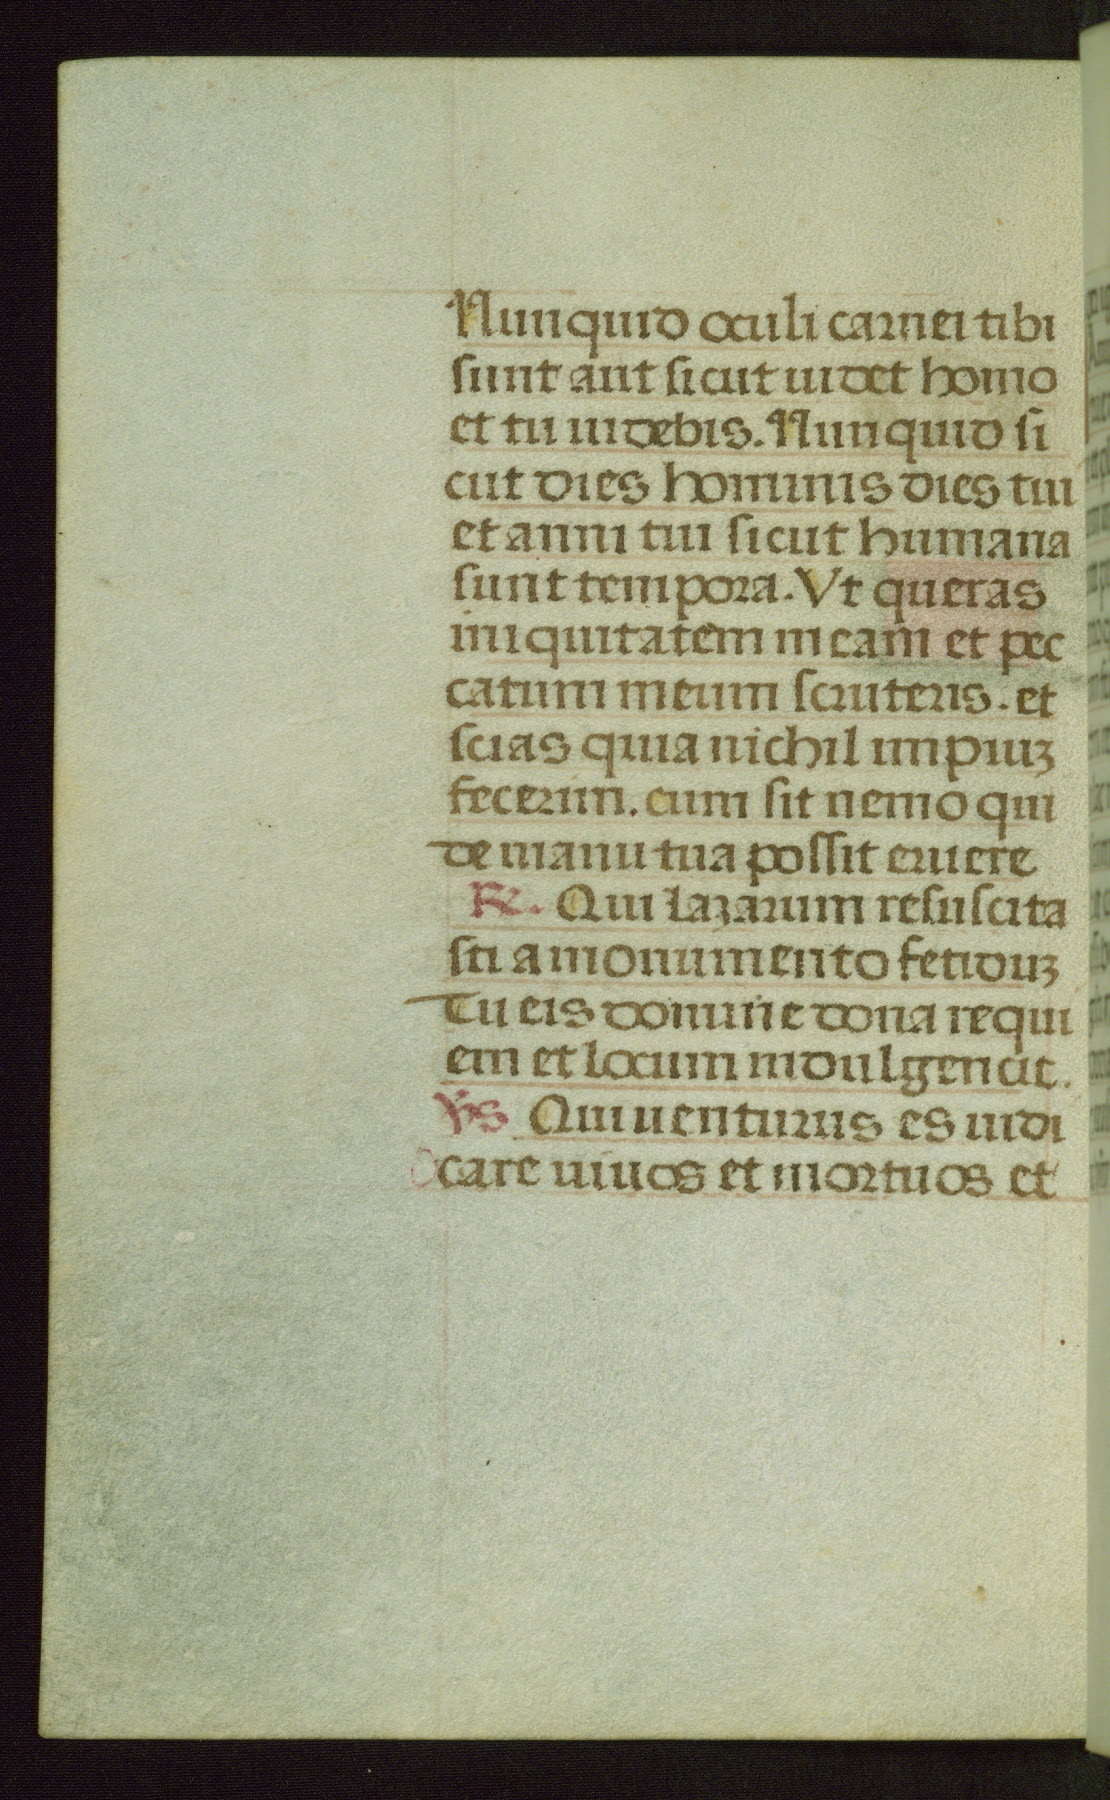 Nunquid oculi carnei tibi
sunt aut sicut uidet homo
et tu uidebis. Nunquid si
cut dies hominis dies tui
et anni tui sicut humana
sunt tempora. Vt queras
iniquitatem meam et pec
catum meum scruteris. et
scias quia nichil impiuʒ
fecerim. cum sit nemo qui
de manu tua possit eruere
℟. Qui lazarum resuscita
sti a monumento fetiduʒ
Tu eis domine dona requi
em et locum indulgencie.
℣s Qui uenturus es iudi
care uiuos et mortuos et